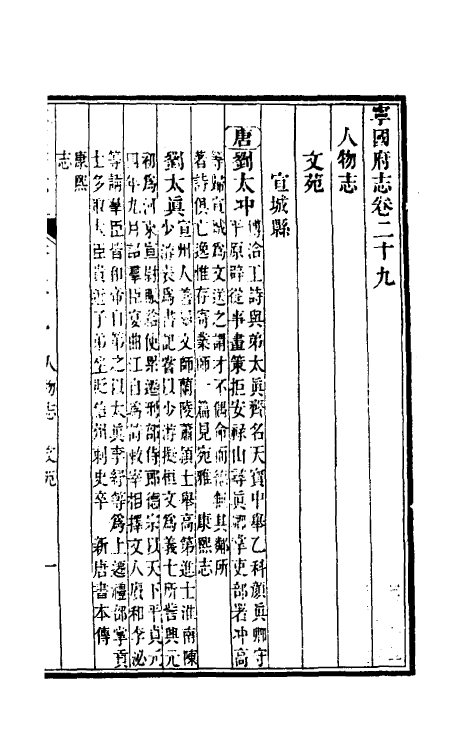 寧國府志卷二十九
人物志
文苑
宣城縣
唐劉太冲博洽工詩與弟太眞齊名天寶中舉乙科顔眞卿守
平原辟從事畫策拒安祿山尋眞卿掌吏部署冲高
等歸宣城爲文送之謂才不偶命而德其鄰所
著詩俱亡逸惟存高業師一篇見宛雅 康熙志
劉太眞宣州人善屬文師蘭陵蕭頴士舉高第進士淮南陳
少游表爲書記嘗以少游擬桓文爲義士所訾興元
初爲河東宣慰賑給使累遷刑部侍郎德宗以天下平貞元
四年九月詔羣臣宴曲江自爲詩敕宰相擇文人賡和李泌
等請羣臣皆和帝自第之以太眞李紓等爲上遷禮部掌貢
士多取大臣貴近子弟坐貶信州刺史卒 新唐書本傳
康熙
志
人物志 文苑 一